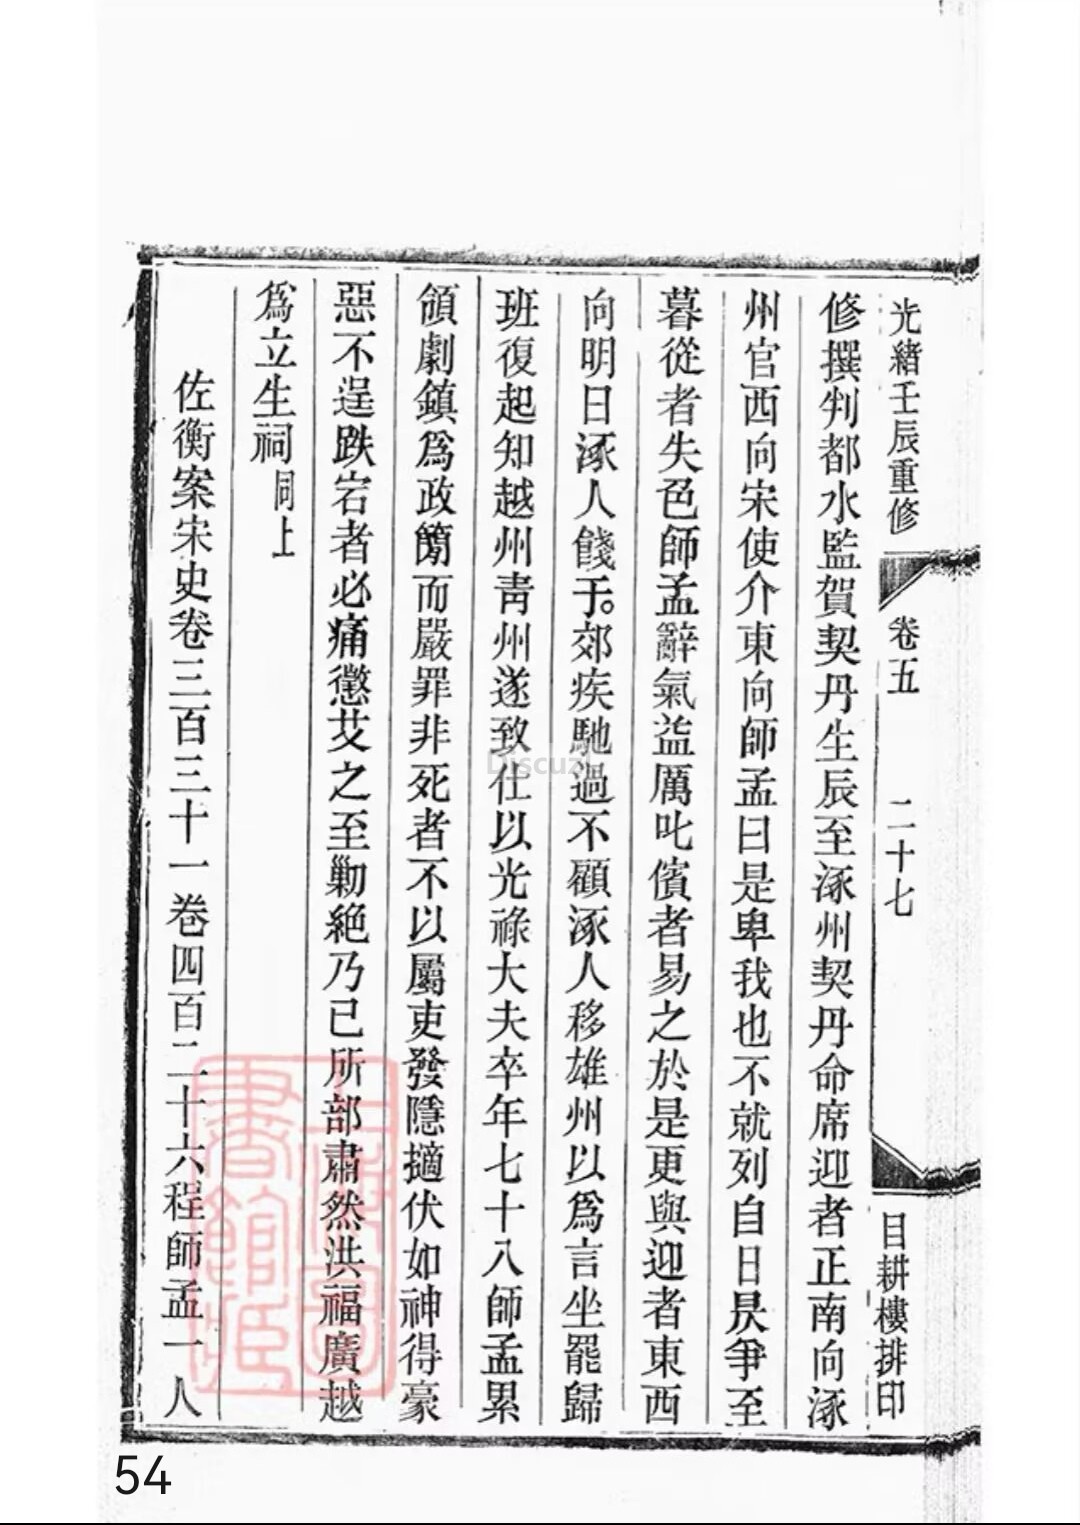 光緒壬辰重修 卷五 二十七 目耕樓排印
修撰判都水監賀契丹生辰至涿州契丹命席迎者正南向涿
州官西向宋使介東向師孟曰是卑我也不就列自日昃爭至
暮從者失色師孟辭氣益厲叱儐者易之於是更與迎者東西
向明日涿人餞于。郊疾馳過不顧涿人移雄州以爲言坐罷歸
班復起知越州靑州遂致仕以光祿大夫卒年七十八師孟累
領劇鎮爲政簡而嚴罪非死者不以屬吏發隱擿伏如神得豪
惡不逞跌宕者必痛懲艾之至勦絕乃已所部肅然洪福廣越
爲立生祠同上
佐衡案宋史卷三百三十一卷四百二十六程師孟一人
上海圖書館藏
Discuz!
54